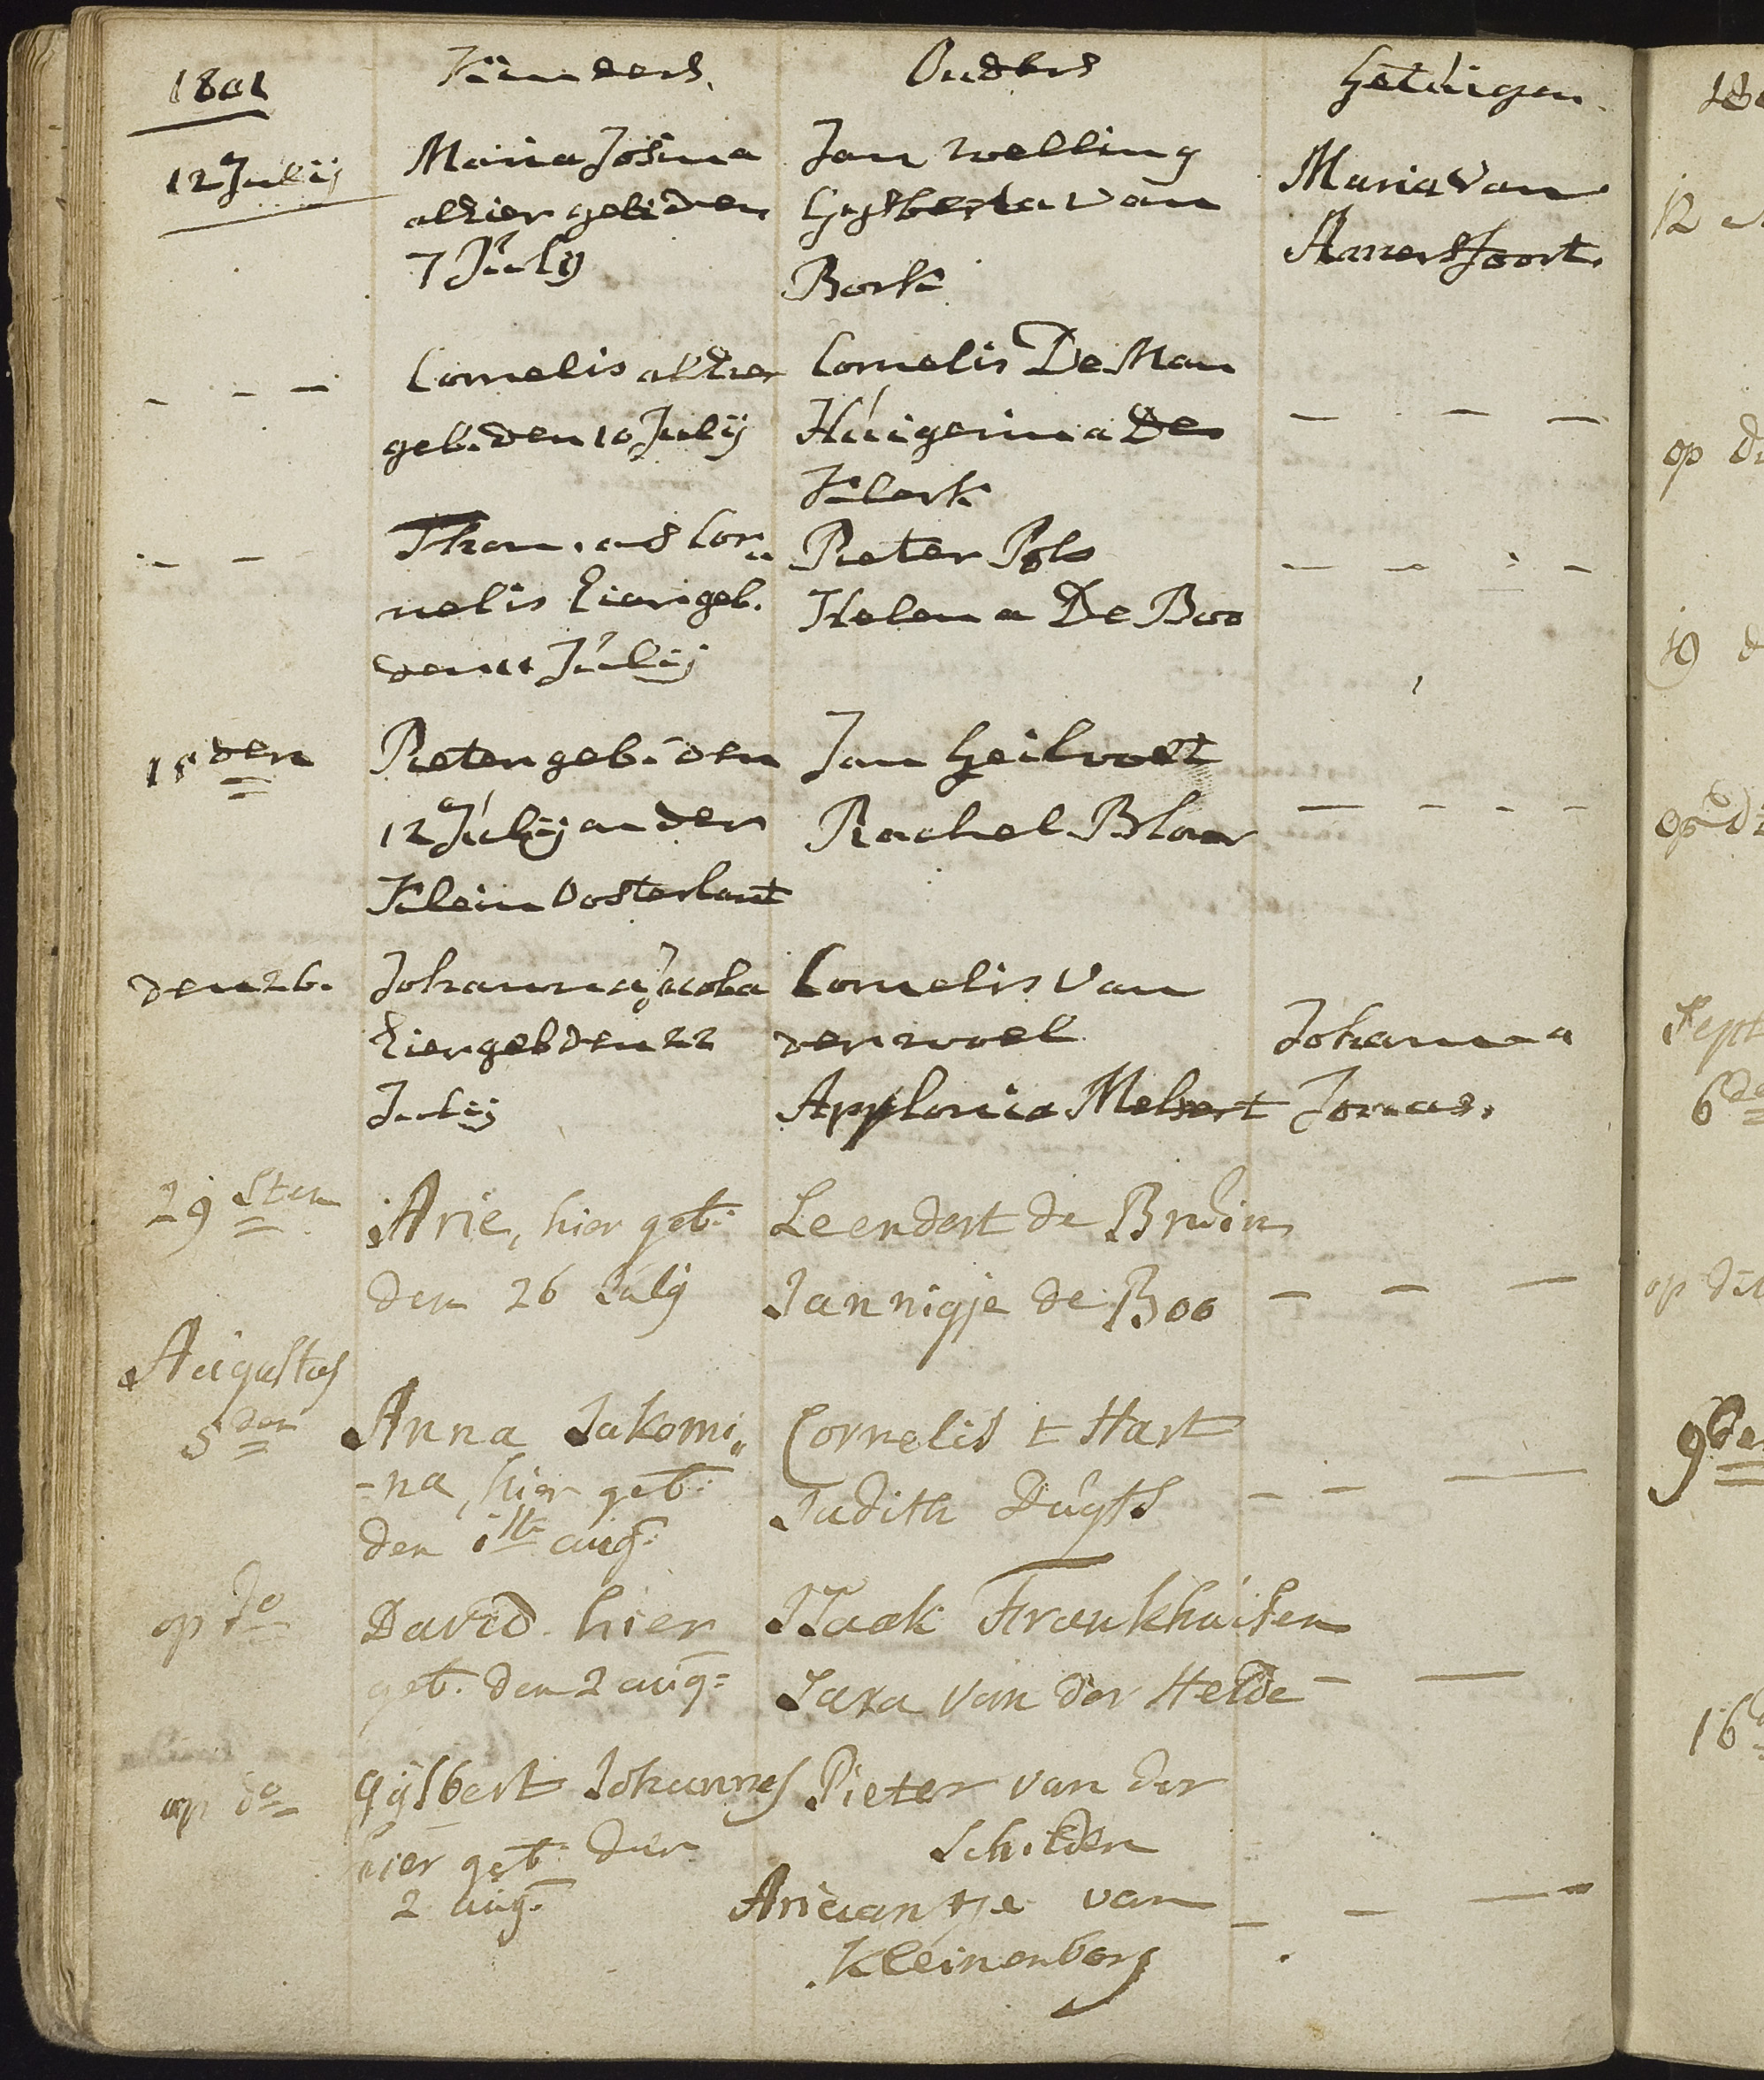 1801 Kinders. Ouders Getuigen
12 Julij Maria Josina Jan Welling Maria van
alhier geb: den Gysberta van Amersfoort.
7 July Bork
- - - Cornelis alhier Cornelis De Man - - -
geb. den 10 Julij Huigerina De
Klerk
- - Thomas Cor„ Pieter Pols - - - -
nelis hier geb. Helena De Boo
den 11 Julij
15 den Pieter geb. den Jan Geilvoet
12 Julij an den Rachel Blom - - - -
Klein Oosterlant
den 26. Johanna Jacoba Cornelis van
hier geb den 22 der Wael Johanna
Julij Applonia Melsert Jonas.
29 sten Arie, hier geb: Leendert de Bruin
den 26 July Jannigje de Boo - - -
Augustus
5 den Anna Jakomi„ Cornelis t Hart
-na, hier geb: Judith Duyts - - -
den 1ste aug:
op do David hier Isaak Frankhuisen
geb. den 2 aug: Sara van der Helde - -
op do Gijsbert Johannes Pieter van der
hier geb: den Schilden
2 aug: Ariaantje van - - -
Kleinenberg
12
op
19
Sept
6
op
9de
16